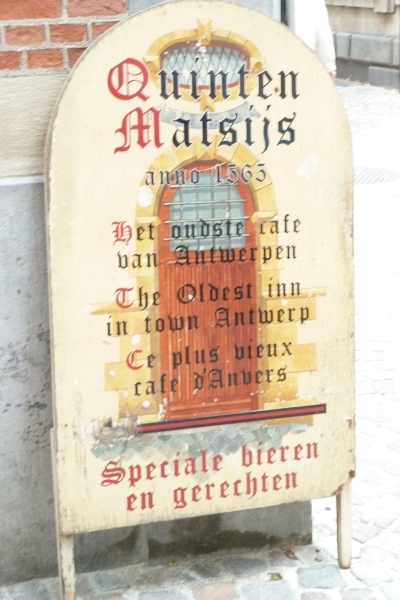 Quinten
Matsijs
anno 1565
Het oudste cafe
van Antwerpen
The Oldest inn
in town Antwerp
Ce plus vieux
cafe d'Anvers
Speciale bieren
en gerechten